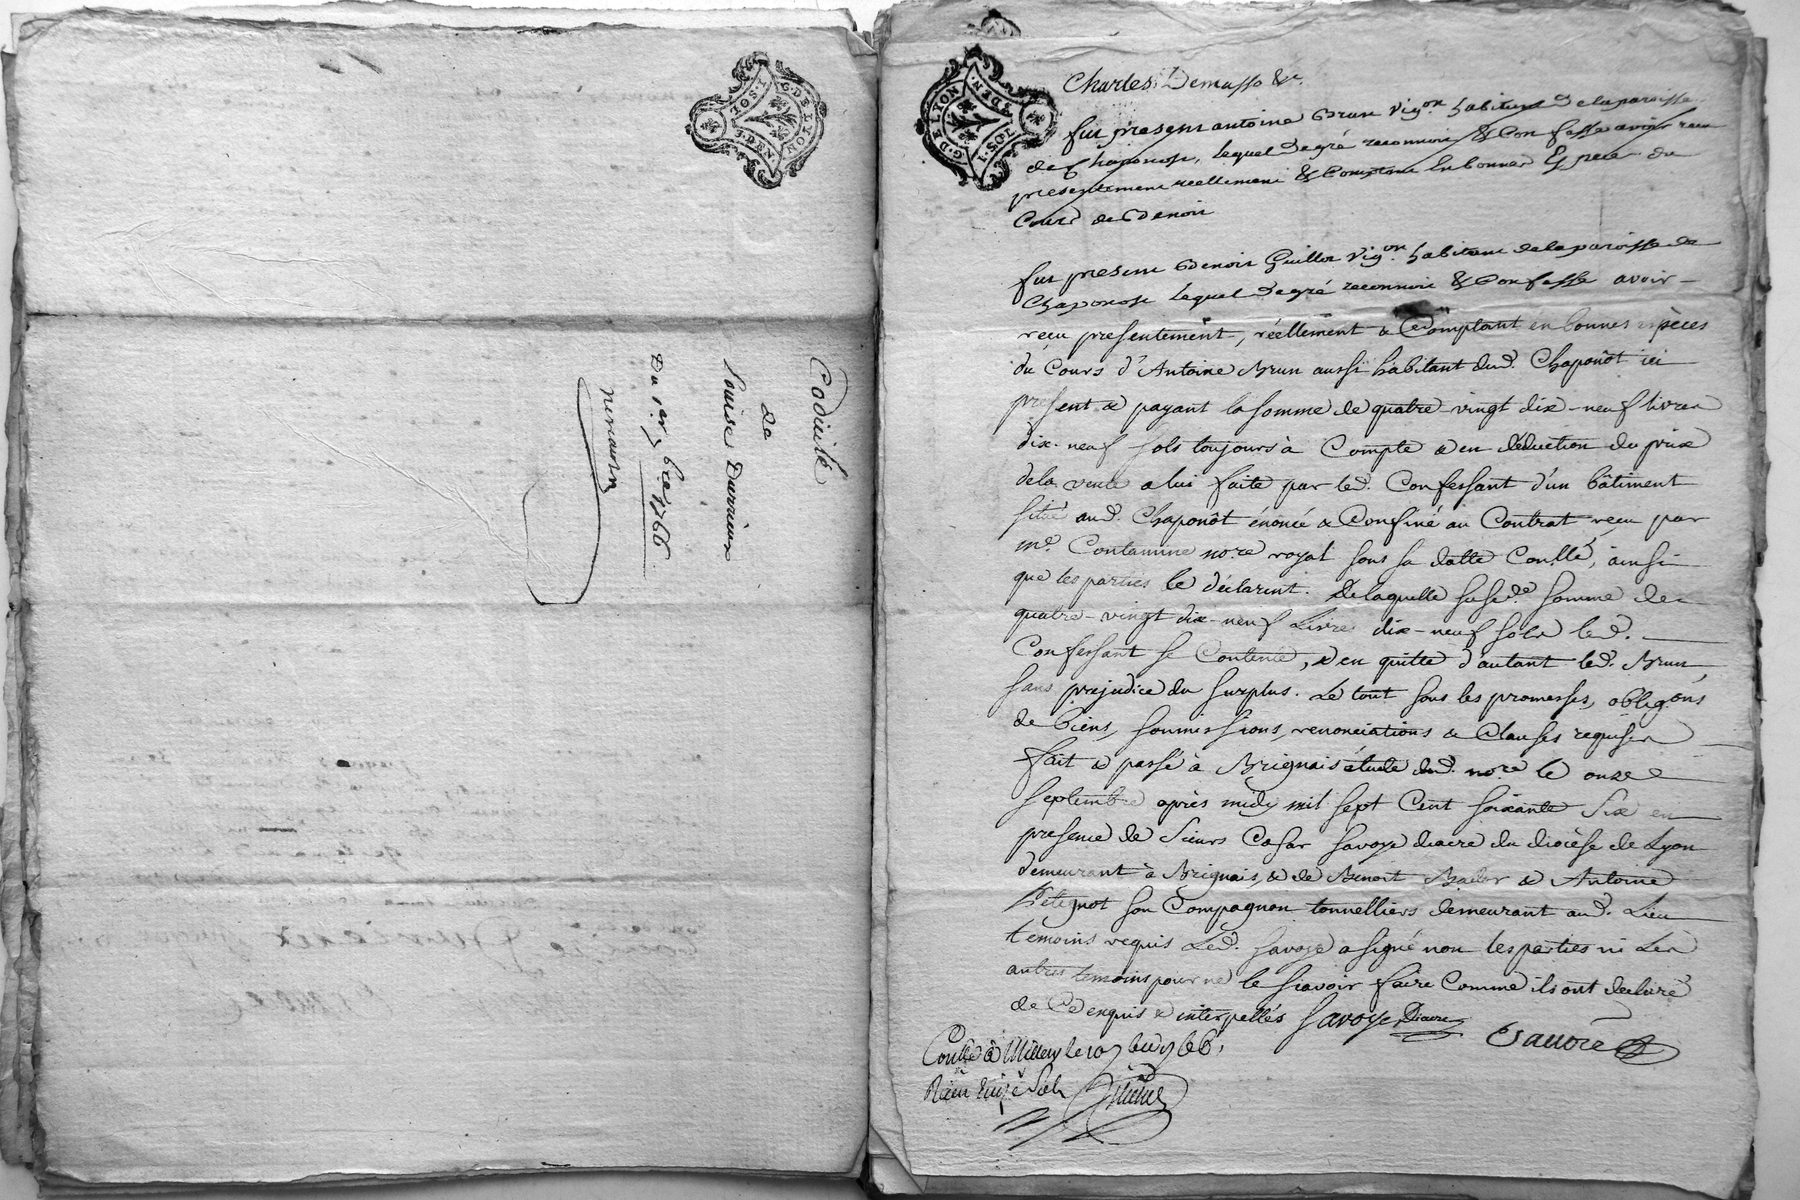 G. DE LYON
1. SOL. 4. DEN.
Codicile
De
Louise Durrieux
Du 1er 7bre 1766
G. DE LYON
1. SOL. DEN.
Charles Demasso &c
fut present antoine Brun vigon habitant de la paroisse
de Chaponost, lequel de gré reconnoit & Confesse avoir recu
presentement reellement & Comptant En bonnes Especes du
Cours de Benoit
fut present Benoit Guillot vigon habitant de la paroisse de
Chaponost lequel de gré reconnoit & Confesse avoir
recu presentement, réellement & Comptant en bonnes espèces
du Cours d'Antoine Brun aussi habitant dud. Chaponôt ici
present & payant la somme de quatre vingt dix-neuf livres
dix-neuf sols toujours à Compte & en déduction du prix
de la vente a lui faite par led. Confessant d'un bâtiment
situé aud. Chaponôt énoncé & Confiné au Contrat recu par
me. Contamine nore royal sous sa datte Conllé, ainsi
que les parties le déclarent. De laquelle susde somme de
quatre-vingt dix-neuf Livres dix-neuf sols led.
Confessant se Contente, & en quitte d'autant led. Brun
sans prejudice du surplus. Le tout sous les promesses, obligons
de biens, soumissions, renonciations & Clauses requises
fait & passé à Brignais étude dud. nore le onze
septembre après midy mil sept Cent soixante Six en
presence de Sieurs Cesar Savoye diacre du diocèse de Lyon
demeurant à Brignais, & de Benoit Bador & Antoine
Petignot son Compagnon tonnelliers demeurant aud. Lieu
temoins requis Led. Savoye a signé non les parties ni Les
autres temoins pour ne le scavoir faire Comme ils ont declaré
de Ce enquis & interpellés Savoye Diacre
Conllé à Millery le 7bre 1766